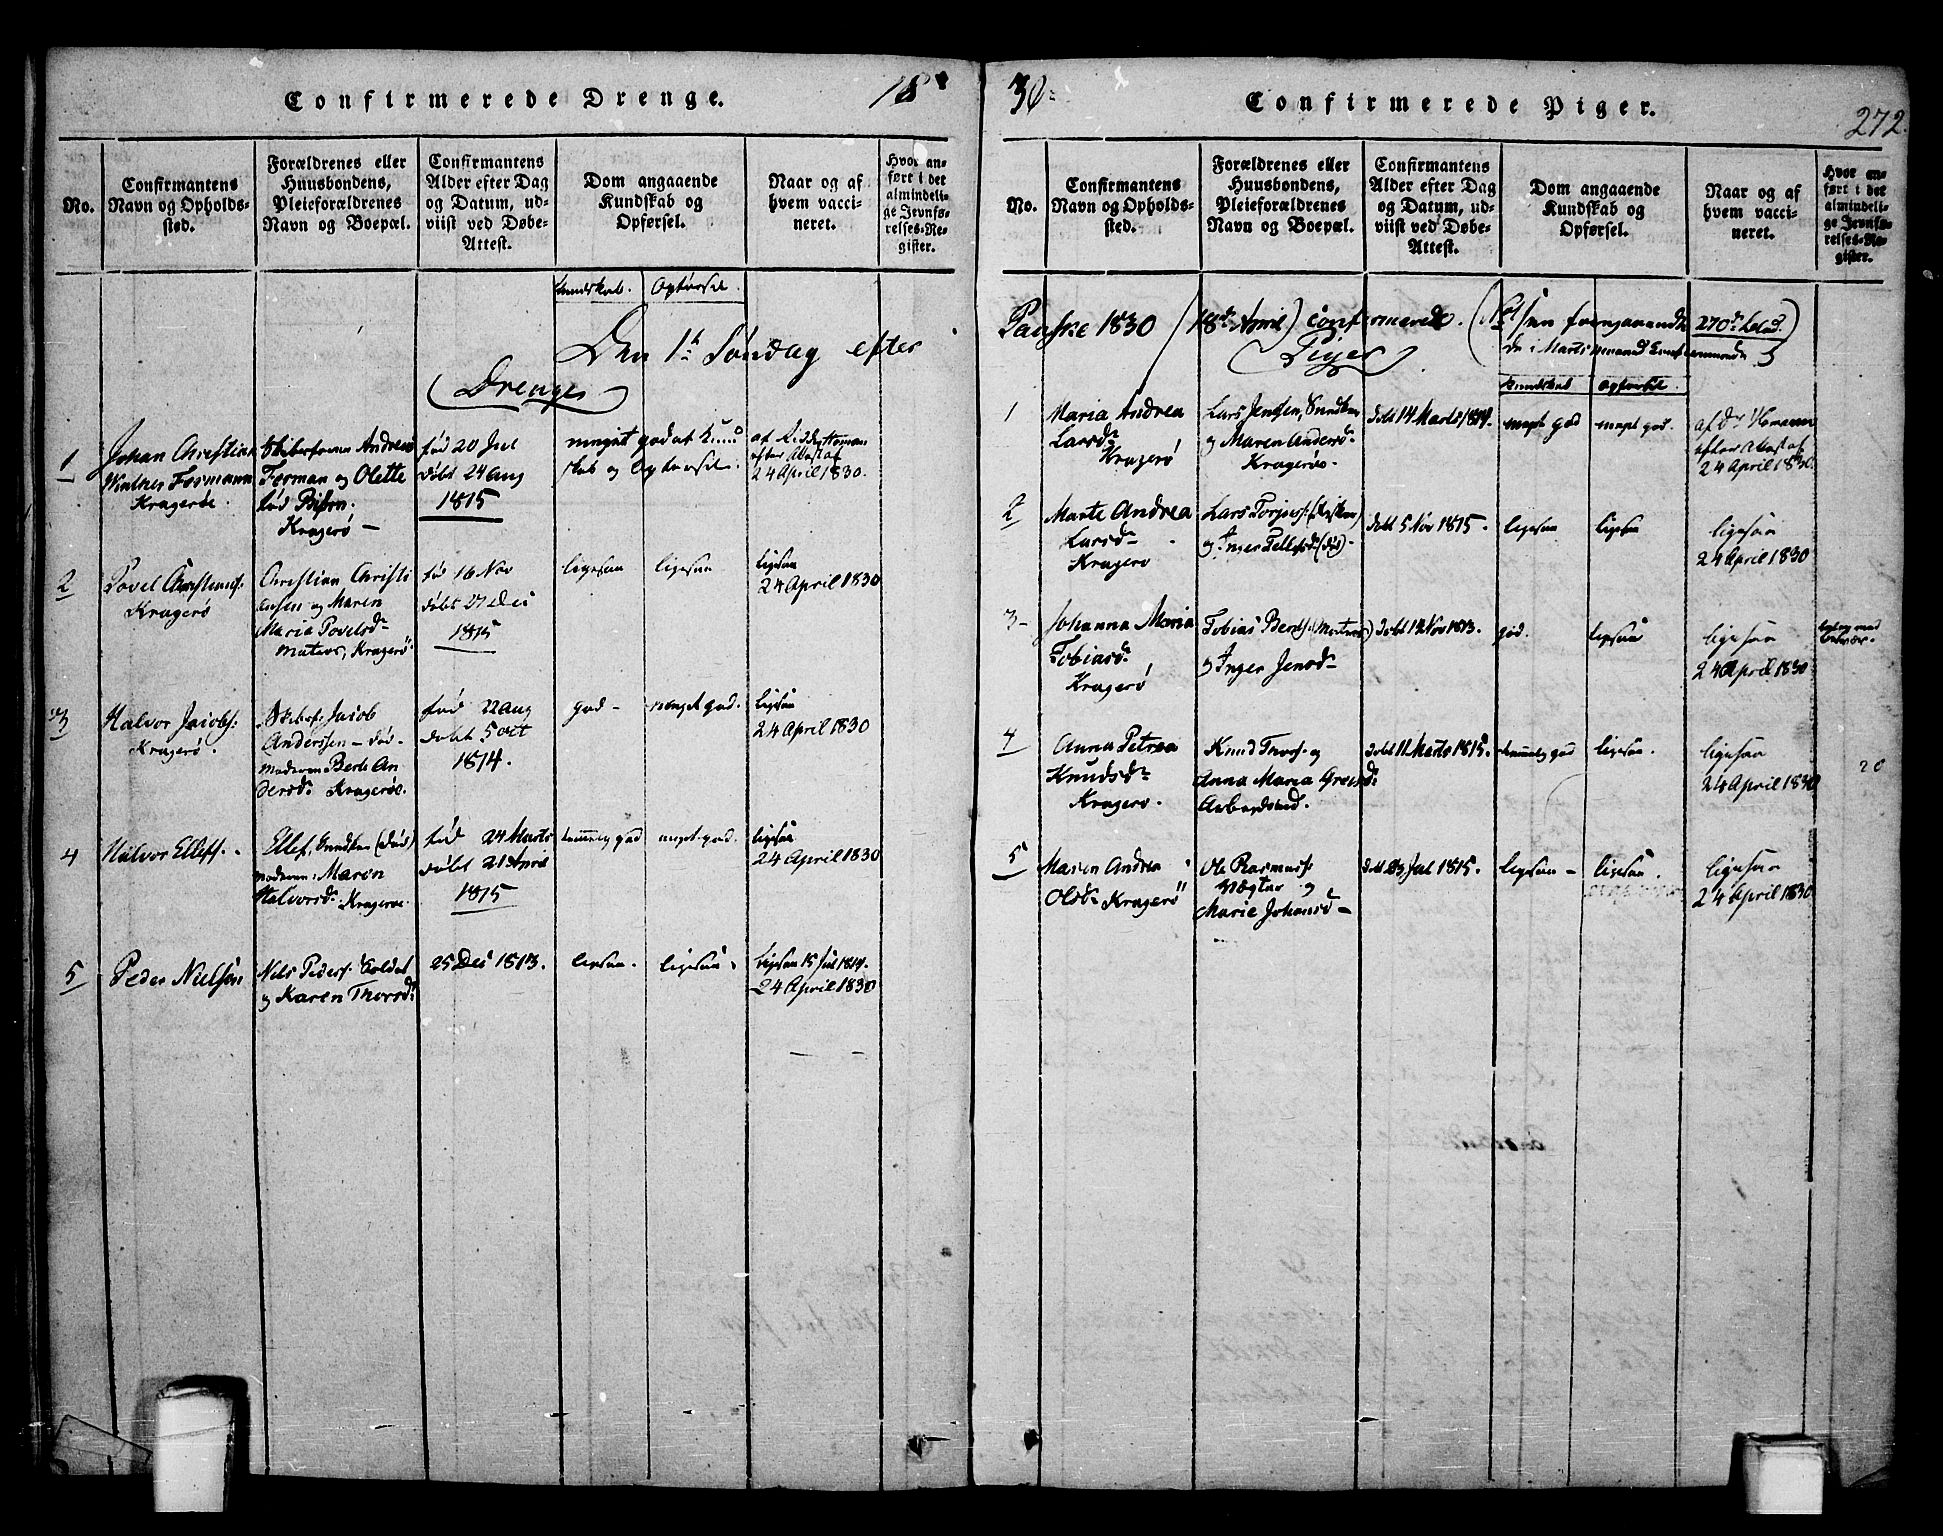 Confirmerede Drenge.
18
No.
Confirmantens
Navn og Opholds-
sted.
Forældrenes eller
Huusbondens,
Pleieforældrenes
Navn og Boepæl.
Confirmantens
Alder efter Dag
og Datum, ud-
viist ved Døbe-
Attest.
Dom angaaende
Kundskab og
Opførsel.
Naar og af
hvem vacci-
neret.
Hvor an-
ført i det
almindeli-
ge Jevnfø-
relses-Re-
gister.
Kundskab. Opførsel.
Den 1te Søndag efter
Drenge
1
Johan Christian
Winther Formann
Kragerøe.
Skibsf. Andreas
Forman og Olette
fød Biørn.
Kragerø -
fød 20 Jul
døbt 24 Aug
1815
meget god at Kund
skab og Opførsel.
af Ridder Homan
efter Attest af
24 April 1830.
2
Povel Christians.
Kragerø
Christian Christi
ansen og Maren
Maria Povelsd.
Matros, Kragerø
fød 16 Nov
døbt 27 Dec
1815
ligesaa
ligesaa
ligesaa
24 April 1830
3
Halvor Jacobs.
Kragerø.
Skibsf. Jacob
Anderssen - død.
moderen Berte An
dersd. Kragerøe.
fød 22 Aug
døbt 5 Oct
1814.
god -
meget god.
ligesaa
24 April 1830
4
Halvor Ellefs. -
Ellef, (død)
moderen: Maren
Halvorsd. Kragerøe.
fød 24 Marts
døbt 21 April
1815
temmelig god
meget god.
ligesaa
24 April 1830
5
Peder Nielsen
Nels Peders. Soldat
og Karen Thorsd.
25 Dec 1813.
ligesaa.
ligesaa.
ligesaa 15 Jul 1814.
24 April 1830
30
Confirmerede Piger.
272.
No.
Confirmantens
Navn og Opholds-
sted.
Forældrenes eller
Huusbondens,
Pleieforældrenes
Navn og Boepæl.
Confirmantens
Alder efter Dag
og Datum, ud-
viist ved Døbe-
Attest.
Dom angaaende
Kundskab og
Opførsel.
Naar og af
hvem vacci-
neret.
Hvor an-
ført i det
almindeli-
ge Jevnfø-
relses-Re-
gister.
Paaske 1830 (18de April) confirmerede. foregaaende 270de
de i Marts maaned Confirmerede
Piger
Kundskab Opførsel
1
Maria Andrea
Larsd.
Kragerø
Lars Jensen,
og Maren Andersd.
Kragerøe.
døbt 14 Marts 1814.
meget god
meget god.
af Dr Homan
efter Attest af
24 April 1830.
2
Marte Andrea
Larsd.
Kragerø
Lars Torjus.
og Inger Tellefsd. (død).
døbt 5 Nov 1815.
ligesaa
ligesaa
ligesaa
24 April 1830
3
Johanna Maria
Tobiasd.
Kragerø
Tobias Bents.
og Inger Jensd.
døbt 12 Nov 1813.
god.
ligesaa
ligesaa
24 April 1830
4
Anna Petrea
Knudsd.
Kragerø.
Knud Thors. og
Anna Maria
Arbeidsmd.
døbt 11 Marts 1815.
temmelig god
ligesaa.
ligesaa
24 April 1830
20
5
Maren Andrea
Olsd. Kragerø
Ole Rasmus.
Vægter og
Marie Johansd -
døbt 23 Jul 1815.
ligesaa -
ligesaa.
ligesaa
24 April 1830